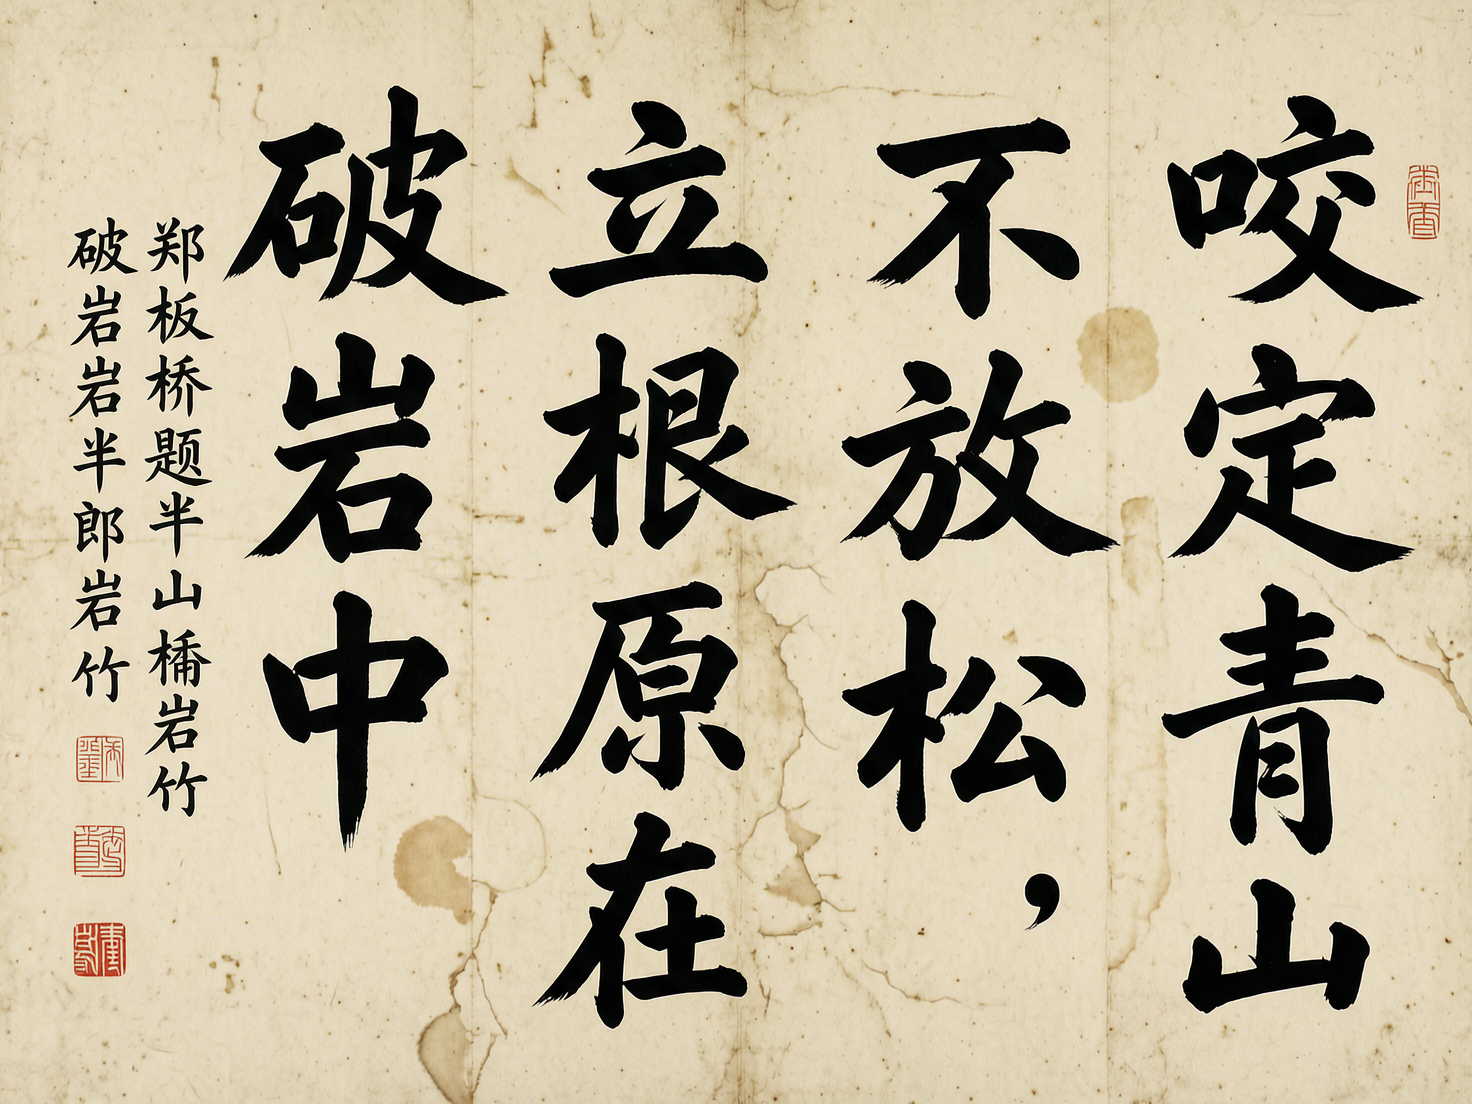 咬定青山
不放松，
立根原在
破岩中
郑板桥题半山橘岩竹
破岩岩半郎岩竹